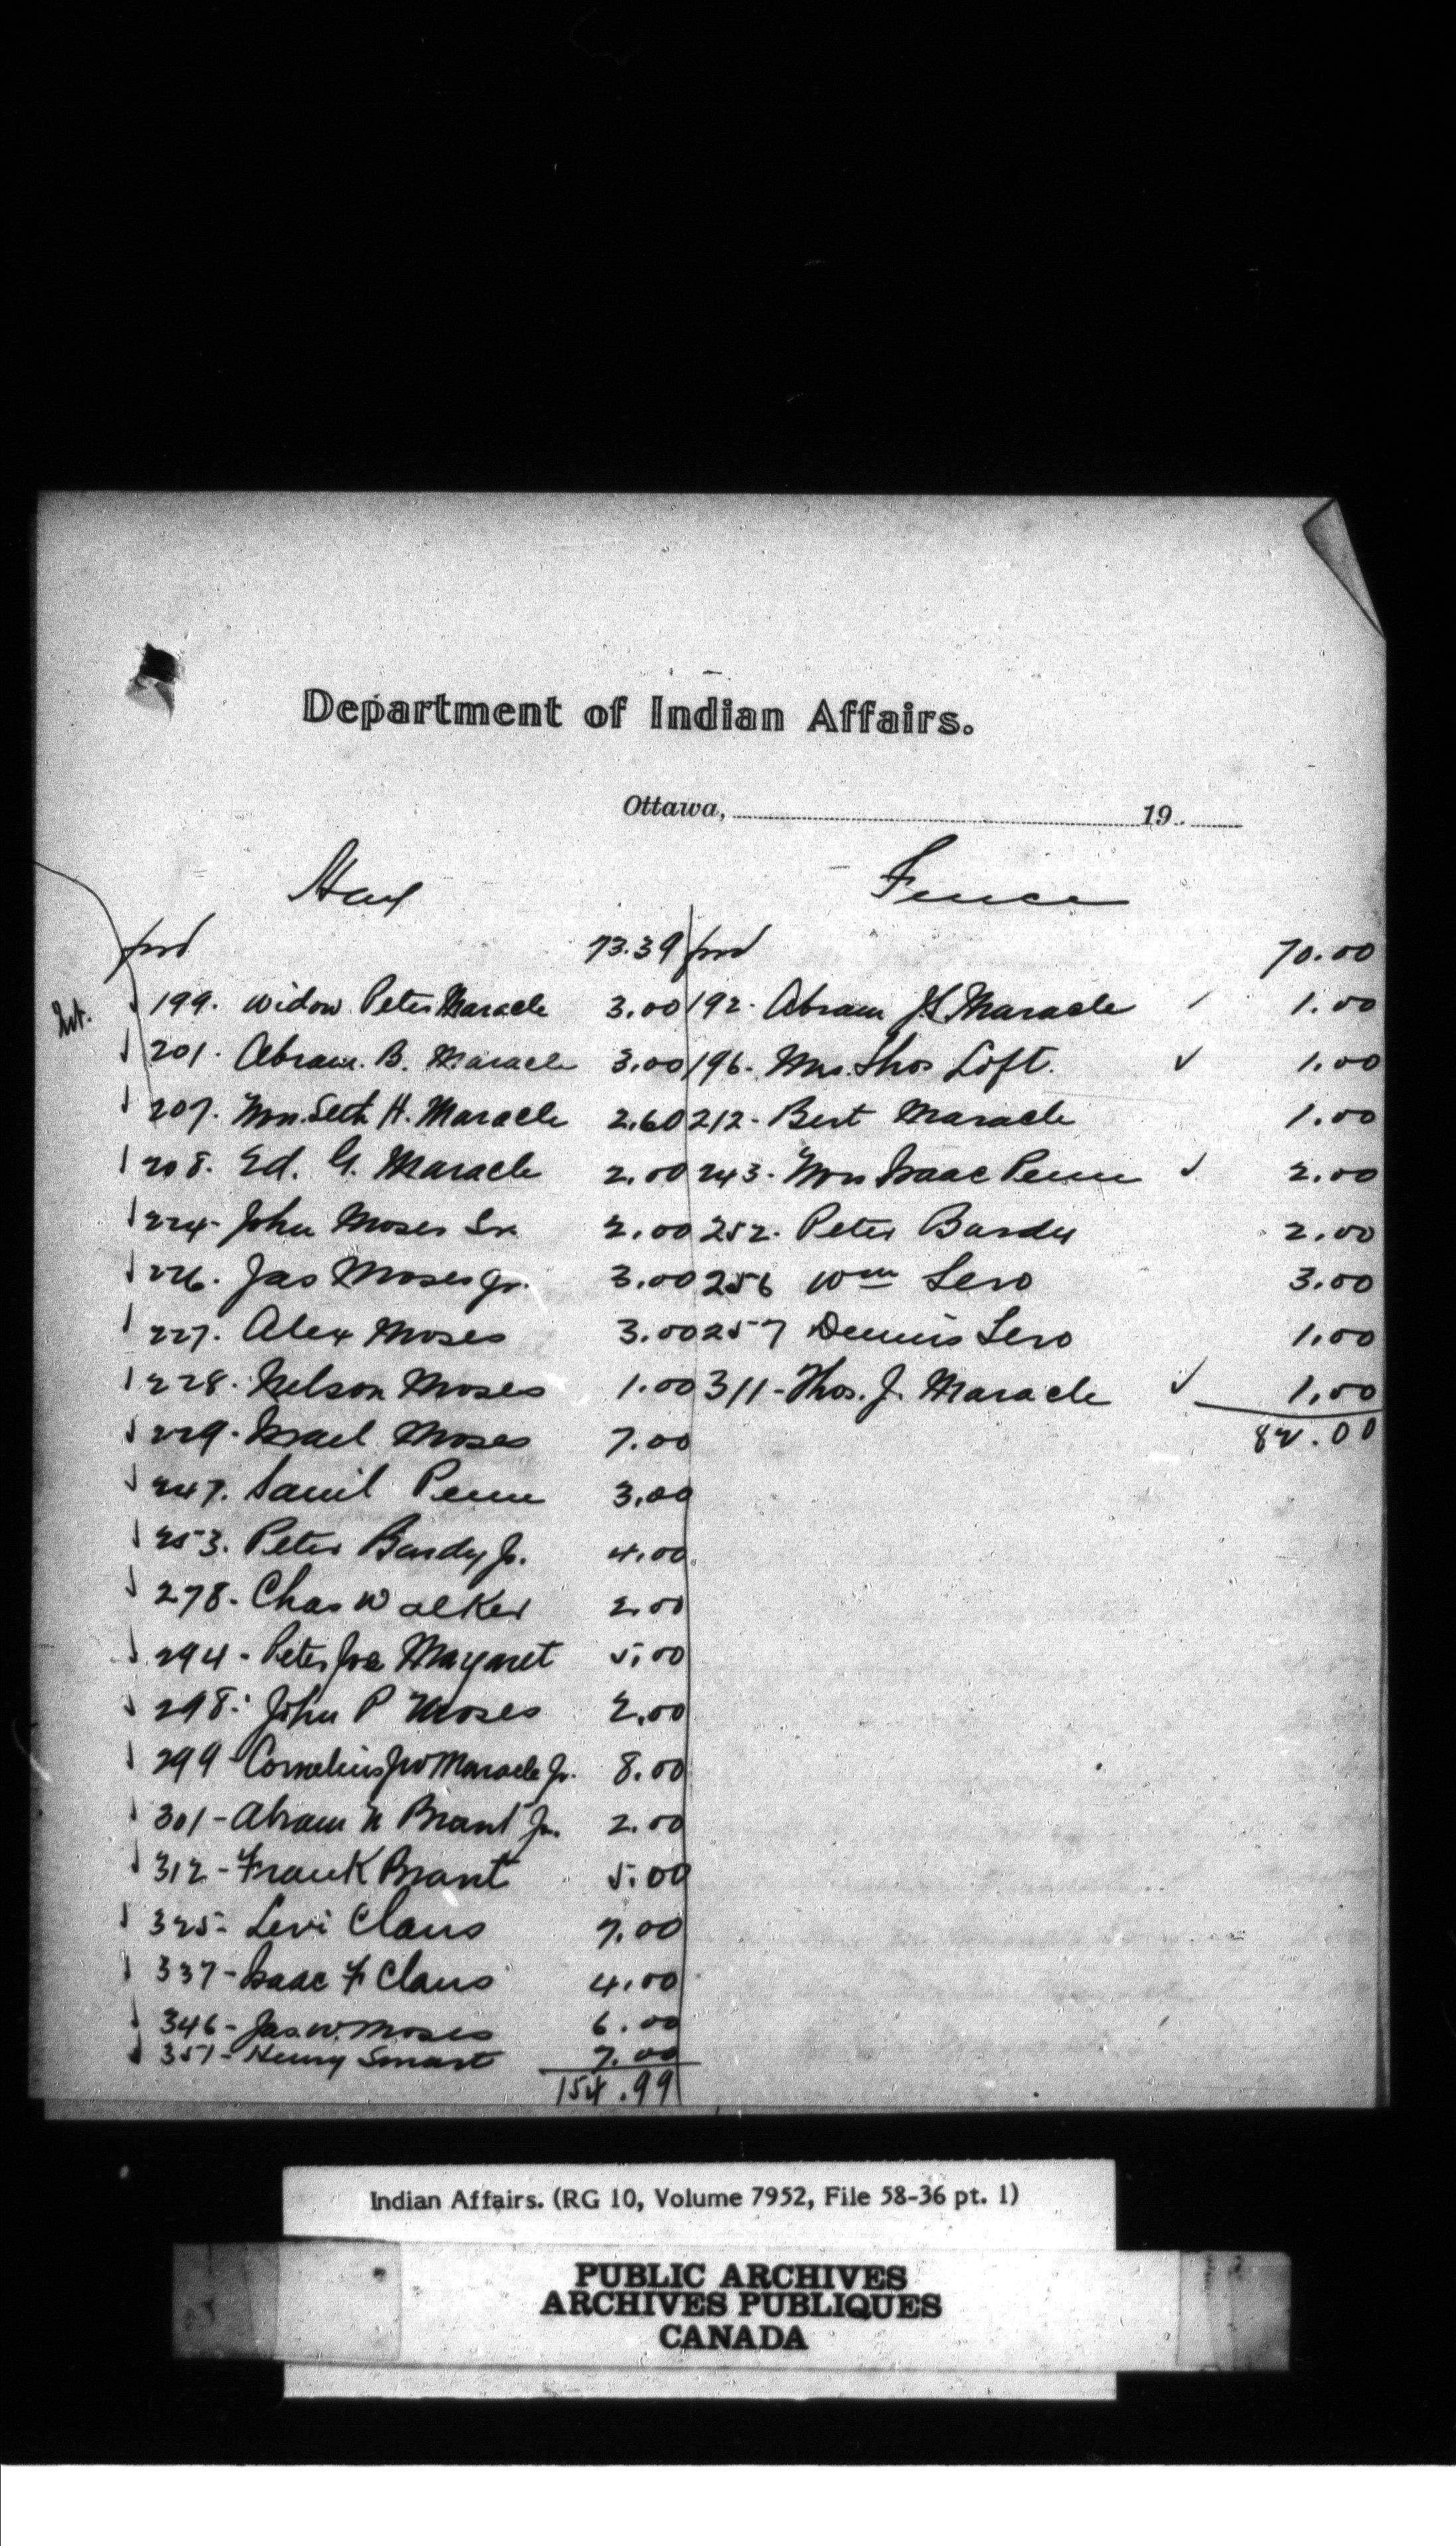 Department of Indian Affairs.
Ottawa, 19
Hay Fence
fwd 73.39 fwd 70.00
199. Widow Peter Maracle 3.00 192. Abram J S Maracle 1.00
201. Abram. B. Maracle 3.00 196. Mrs. Thos Loft. ✓ 1.00
207. Mrs. Seth H. Maracle 2.60 212- Bert Maracle 1.00
208. Ed. G. Maracle 2.00 243- Mrs Isaac Penn ✓ 2.00
224- John Moses Sr. 2.00 252. Peter Bardy 2.00
226. Jas Moses Jr. 3.00 256 Wm Sero 3.00
227. Alex Moses 3.00 257 Dennis Sero 1.00
228. Nelson Moses 1.00 311- Thos. J. Maracle ✓ 1.00
229. Israel Moses 7.00 82.00
247. Saml Penn 3.00
253. Peter Bardy Jr. 4.00
278- Chas Walker 2.00
294- Peter Joe Margaret 5.00
298. John P Moses 2.00
299- Cornelius Maracle Jr. 8.00
301- Abram N Brant Jr. 2.00
312- Frank Brant 5.00
325- Levi Claus 7.00
337- Isaac F Claus 4.00
346- Jas. W. Moses 6.00
351- Henry Smart 7.00
154.99
Indian Affairs. (RG 10, Volume 7952, File 58-36 pt. 1)
PUBLIC ARCHIVES
ARCHIVES PUBLIQUES
CANADA